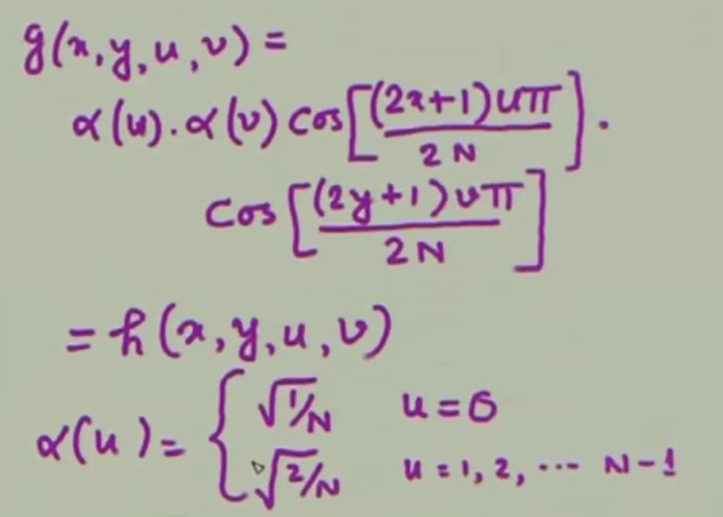 g(x,y,u,v) =
α(u).α(v) cos[(2x+1)uπ / 2N].
cos[(2y+1)vπ / 2N]
= h(x,y,u,v)
α(u) = { √1/N u=0
√2/N u=1,2,... N-1